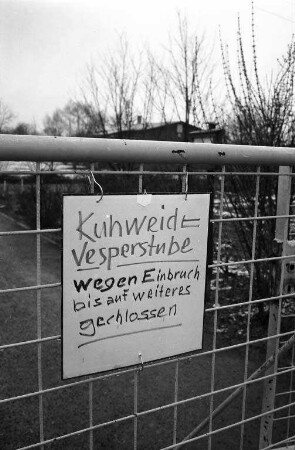 Kuhweid=
Vesperstube
wegen Einbruch
bis auf weiteres
gechlossen